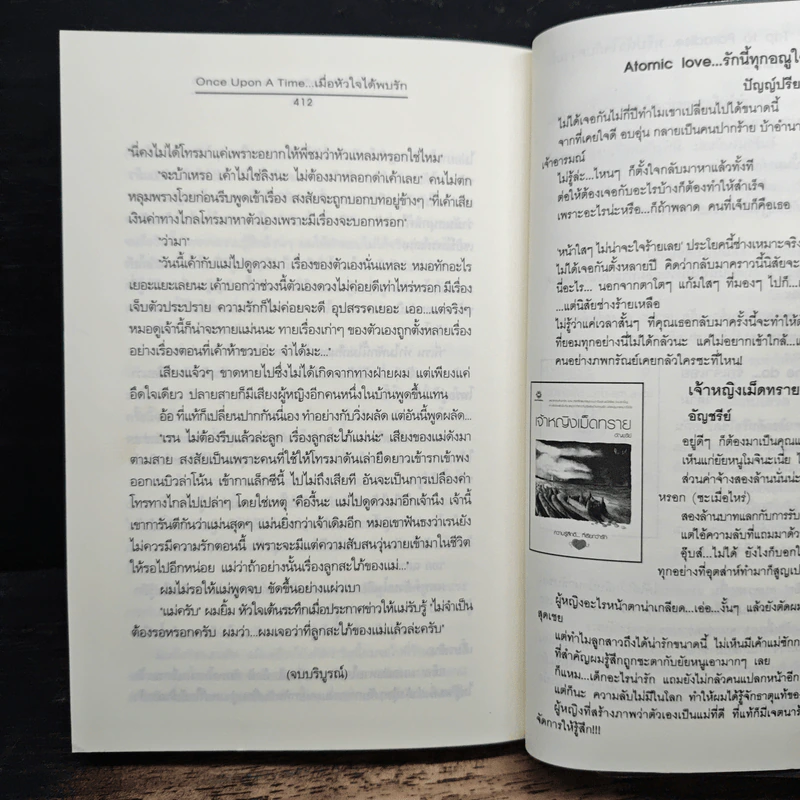 Once Upon A Time...เมื่อหัวใจได้พบรัก
412
"นี่คงไม่ได้โทรมาแค่เพราะอยากให้พี่ชมว่าหัวแหลมหรอกใช่ไหม"
"จะบ้าเหรอ เค้าไม่ใช่ลิงนะ ไม่ต้องมาหลอกด่าเค้าเลย" คนไม่ตก
หลุมพรางโวยก่อนรีบพูดเข้าเรื่อง สงสัยจะถูกบอกบทอยู่ข้างๆ "ที่เค้าเสีย
เงินค่าทางไกลโทรมาหาตัวเองเพราะมีเรื่องจะบอกหรอก"
"ว่ามา"
"วันนี้เค้ากับแม่ไปดูดวงมา เรื่องของตัวเองนั่นแหละ หมอทักอะไร
เยอะแยะเลยนะ เค้าบอกว่าช่วงนี้ตัวเองดวงไม่ค่อยดีเท่าไหร่หรอก มีเรื่อง
เจ็บตัวประปราย ความรักก็ไม่ค่อยจะดี อุปสรรคเยอะ เออ...แต่จริงๆ
หมอดูเจ้านี้ก็น่าจะทายแม่นนะ ทายเรื่องเก่าๆ ของตัวเองถูกตั้งหลายเรื่อง
อย่างเรื่องตอนที่เค้าห้าขวบอ่ะ จำได้มะ..."
เสียงแจ้วๆ ขาดหายไปซึ่งไม่ได้เกิดจากทางฝ่ายผม แต่เพียงแค่
อึดใจเดียว ปลายสายก็มีเสียงผู้หญิงอีกคนหนึ่งในบ้านพูดขึ้นแทน
อ้อ ที่แท้ก็เปลี่ยนปากกันนี่เอง ทำอย่างกับวิ่งผลัด แต่อันนี้พูดผลัด...
"เรน ไม่ต้องรีบแล้วล่ะลูก เรื่องลูกสะใภ้แม่น่ะ" เสียงของแม่ดังมา
ตามสาย สงสัยเป็นเพราะคนที่ใช้ให้โทรมาดันเล่ายืดยาวเข้ารกเข้าพง
ออกเนบิวล่าโน้น เข้ากาแล็กซี่นี้ ไปไม่ถึงเสียที อันจะเป็นการเปลืองค่า
โทรทางไกลไปเปล่าๆ โดยใช่เหตุ "คืองี้นะ แม่ไปดูดวงมาอีกเจ้านึง เจ้านี้
เขาการันตีกันว่าแม่นสุดๆ แม่นยิ่งกว่าเจ้าเดิมอีก หมอเขาฟันธงว่าเรนยัง
ไม่ควรมีความรักตอนนี้ เพราะจะมีแต่ความสับสนวุ่นวายเข้ามาในชีวิต
ให้รอไปอีกหน่อย แม่ว่าถ้าอย่างนั้นเรื่องลูกสะใภ้ของแม่..."
ผมไม่รอให้แม่พูดจบ ขัดขึ้นอย่างแผ่วเบา
"แม่ครับ" ผมยิ้ม หัวใจเต้นระทึกเมื่อประกาศข่าวให้แม่รับรู้ "ไม่จำเป็น
ต้องรอหรอกครับ ผมว่า...ผมเจอว่าที่ลูกสะใภ้ของแม่แล้วล่ะครับ"
(จบบริบูรณ์)
Atomic love...รักนี้ทุกอณูใจ
ปัญญ์ปรีย
ไม่ได้เจอกันไม่กี่ปีทำไมเขาเปลี่ยนไปได้ขนาดนี้
จากที่เคยใจดี อบอุ่น กลายเป็นคนปากร้าย บ้าอำนา
เจ้าอารมณ์
ไม่รู้ล่ะ...ไหนๆ ก็ตั้งใจกลับมาหาแล้วทั้งที
ต่อให้ต้องเจอกับอะไรบ้างก็ต้องทำให้สำเร็จ
เพราะอะไรน่ะหรือ...ก็ถ้าพลาด คนที่เจ็บก็คือเธอ
'หน้าใสๆ ไม่น่าจะใจร้ายเลย' ประโยคนี้ช่างเหมาะจริง
ไม่ได้เจอกันตั้งหลายปี คิดว่ากลับมาคราวนี้นิสัยจะ
นี่อะไร... นอกจากตาโตๆ แก้มใสๆ ที่มองๆ ไปก็...
...แต่นิสัยช่างร้ายเหลือ
ไม่รู้ว่าแค่เวลาสั้นๆ ที่คุณเธอกลับมาครั้งนี้จะทำให้
ที่ยอมทุกอย่างนี่ไม่ได้กลัวนะ แค่ไม่อยากเข้าใกล้...แ
คนอย่างภพกรัณย์เคยกลัวใครซะที่ไหน!
เจ้าหญิงเม็ดทราย
เจ้าหญิงเม็ดทราย
อัญชรีย์
อยู่ดีๆ ก็ต้องมาเป็นคุณแ
เห็นแก่ยัยหนูโมจินะเนี่ย ไ
ส่วนค่าจ้างสองล้านนั่นน่ะ
หรอก (ซะเมื่อไหร่)
สองล้านบาทแลกกับการรับ
แต่ไอ้ความลับที่แถมมาด้ว
อุ๊บส์...ไม่ได้ ยังไงก็บอกไ
ทุกอย่างที่อุตส่าห์ทำมาก็สูญเป
ผู้หญิงอะไรหน้าตาน่าเกลียด...เอ่อ...งั้นๆ แล้วยังดัดผม
สุดเชย
แต่ทำไมลูกสาวถึงได้น่ารักขนาดนี้ ไม่เห็นมีเค้าแม่ซักก
ที่สำคัญผมรู้สึกถูกชะตากับยัยหนูเอามากๆ เลย
ก็แหม...เด็กอะไรน่ารัก แถมยังไม่กลัวคนแปลกหน้าอีก
แต่ก็นะ ความลับไม่มีในโลก ทำให้ผมได้รู้จักธาตุแท้ของ
ผู้หญิงที่สร้างภาพว่าตัวเองเป็นแม่ที่ดี ที่แท้ก็มีเจตนาร้
จัดการให้รู้สึก!!!